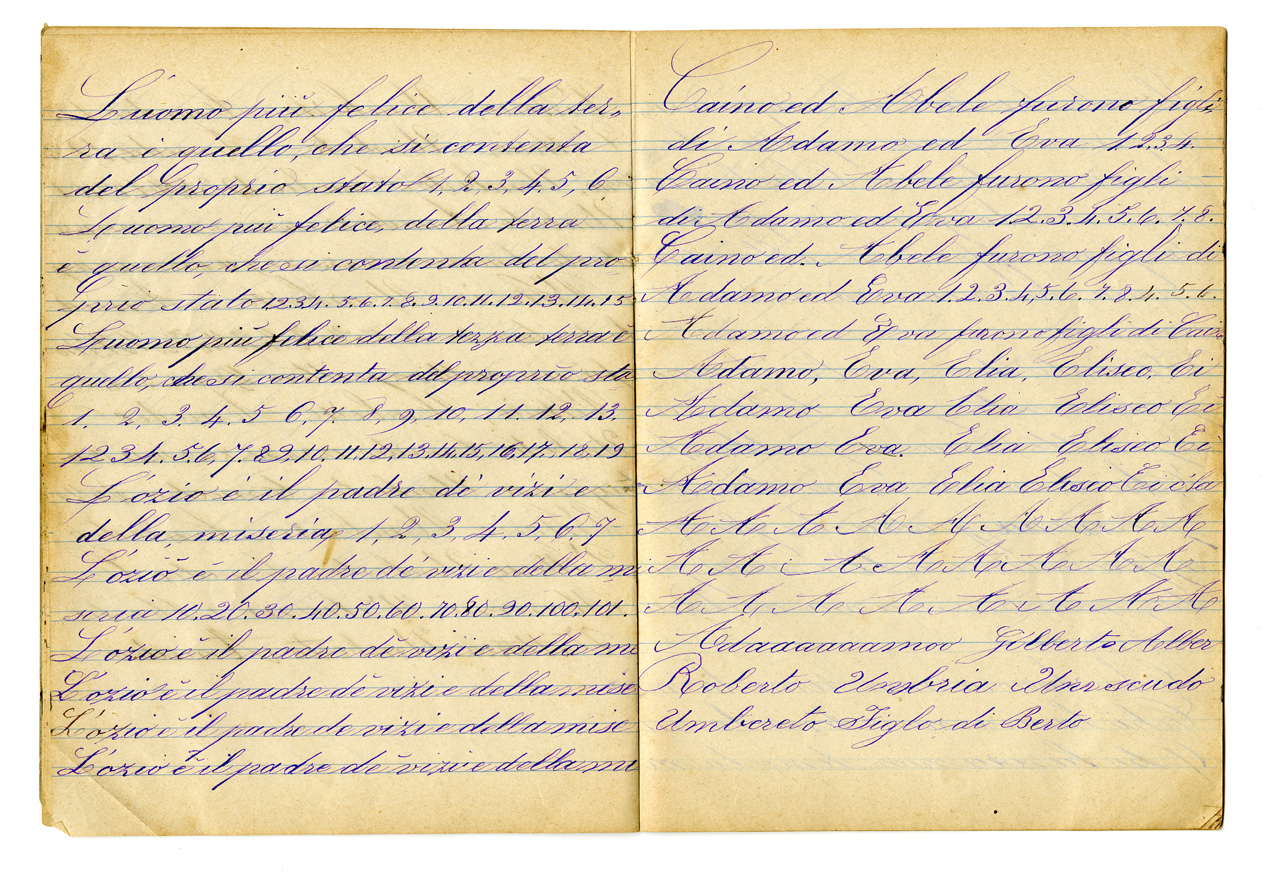 L'uomo più felice della ter-
ra è quello, che si contenta
del proprio stato 1, 2, 3, 4. 5, 6
L'uomo più felice, della terra
è quello, che si contenta del pro
prio stato 1.2.3.4. 5. 6. 7. 8. 9. 10. 11. 12. 13. 14. 15
L'uomo più felice della terza terra è
quello, che si contenta del proprio sta
1. 2, 3. 4. 5 6, 7. 8, 9, 10, 11. 12, 13,
1 2 3 4. 5. 6, 7. 8 9, 10. 11. 12, 13, 14. 15, 16, 17. 18. 19
L'ozio è il padre dé vizi e
della, miseria, 1, 2, 3, 4, 5, 6, 7
L'ozio è il padre dé vizi e della mi
seria 10. 20. 30. 40. 50. 60 70. 80 90. 100. 101.
L'ozio è il padre dé vizi e della mi
L'ozio è il padre dé vizi e della mise
L'ozio è il padre de vizi e della mise
L'ozio è il padre dé vizi e della mi
Caino ed Abele furono figli
di Adamo ed Eva 1.2.3.4.
Caino ed Abele furono figli
di Adamo ed Eva 1.2.3.4.5.6.7.8.
Caino ed. Abele furono figli di
Adamo ed Eva 1.2.3.4,5.6. 7.8.4. 5.6.
Adamo ed Eva furono figli di Cain
Adamo, Eva, Elia, Eliseo, Ei
Adamo Eva Elia Eliseo Ei
Adamo Eva. Elia Eliseo Ei
Adamo Eva Elia Eliseo
A A A A A A A A A
A A A A A A A A
A A, A A A A A A
Adaaaaaaamoo Gilberto Alber
Roberto Umbria Uno scudo
Umbereto Figlo di Berto